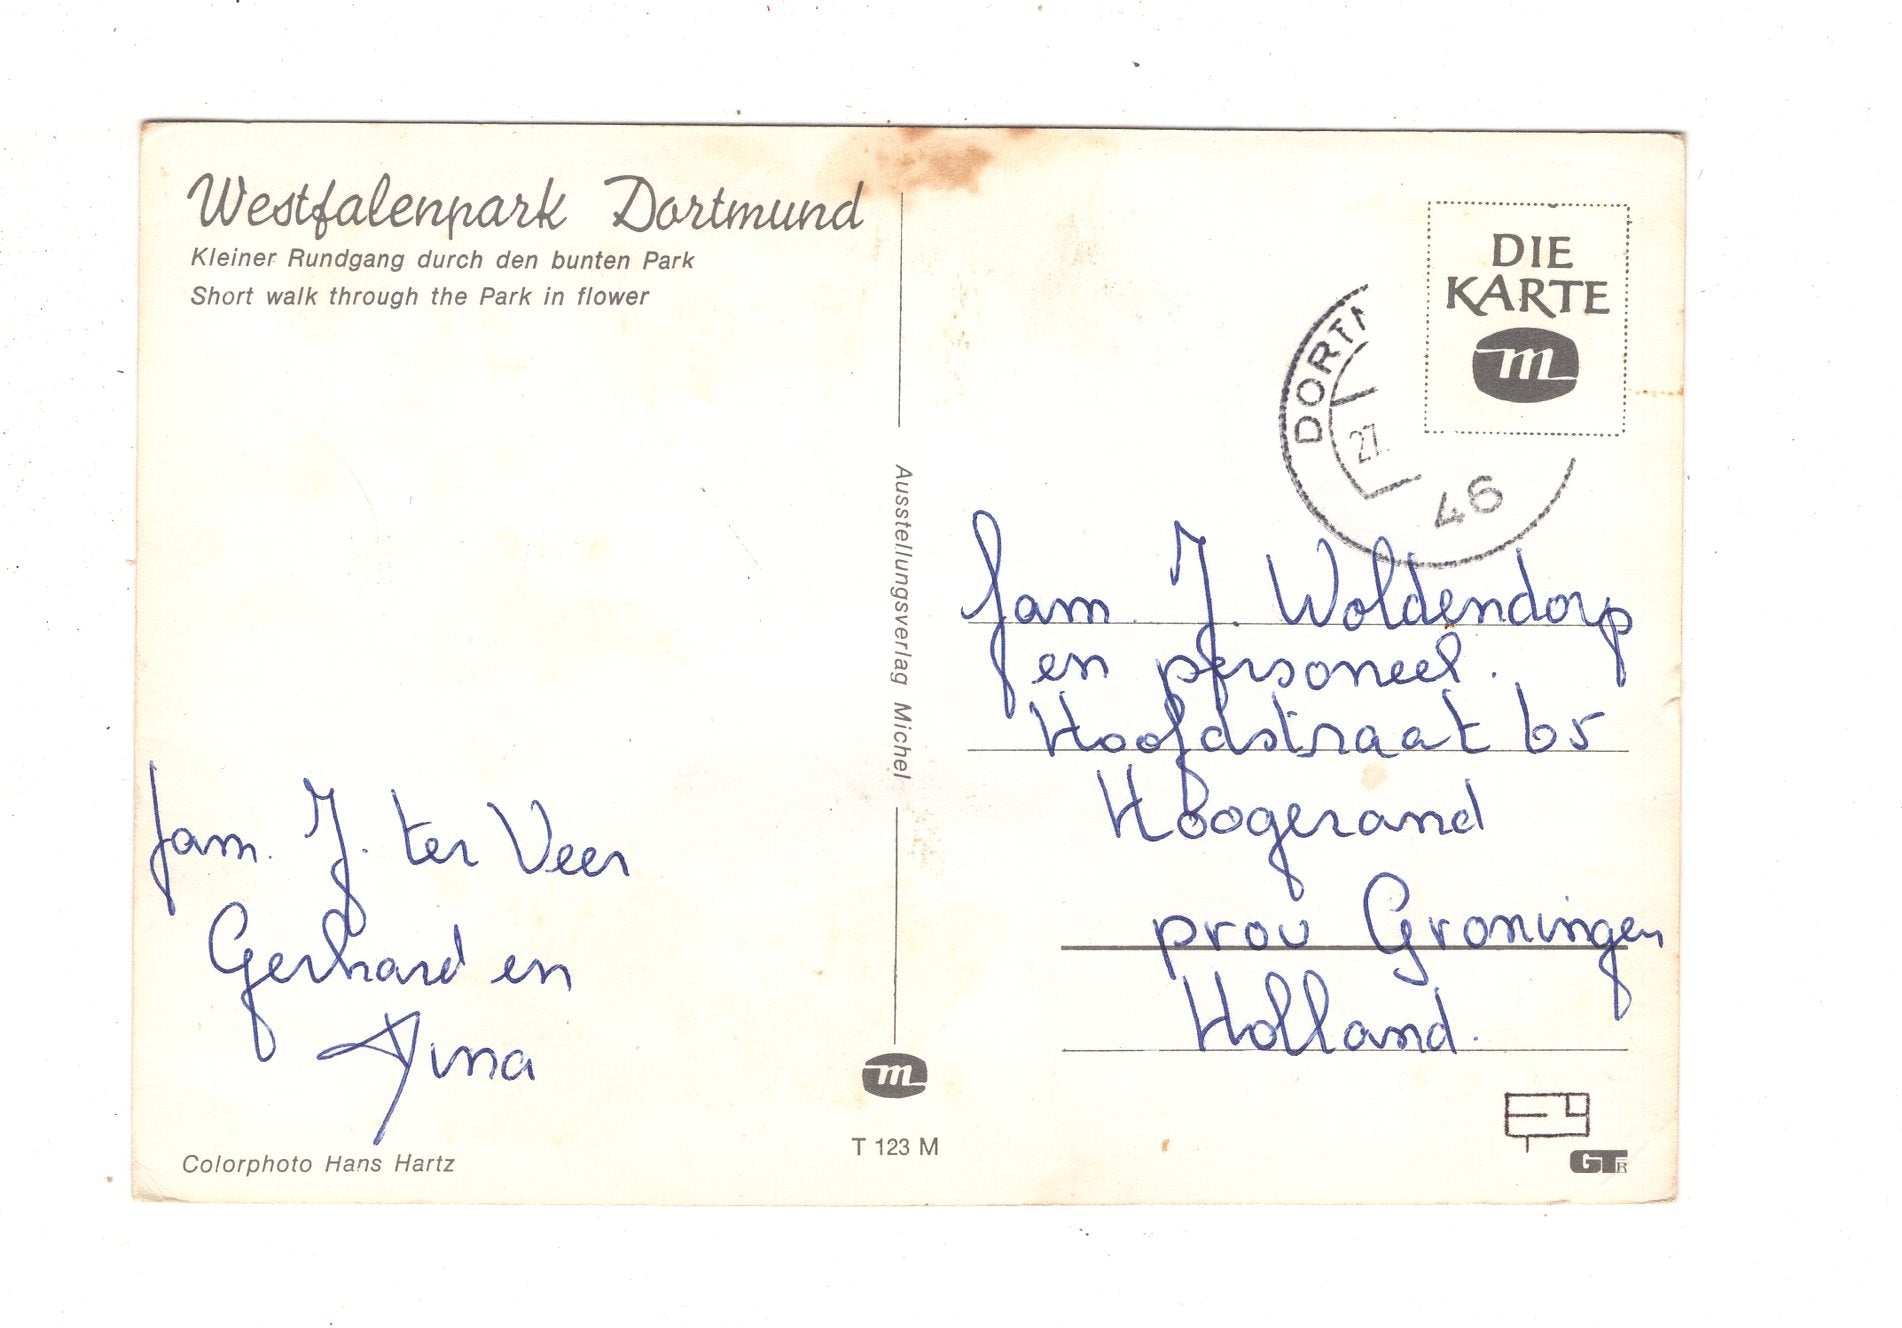 Westfalenpark Dortmund
Kleiner Rundgang durch den bunten Park
Short walk through the Park in flower
DIE
KARTE
m
DORTM
27.
46
Ausstellungsverlag Michel
fam. J. ter Veer
Gerhard en
Aina
fam. J. Woldendorp
en personeel.
Hoofdstraat 65
Hoogezand
prov Groningen
Holland.
m
T 123 M
Colorphoto Hans Hartz
GTR